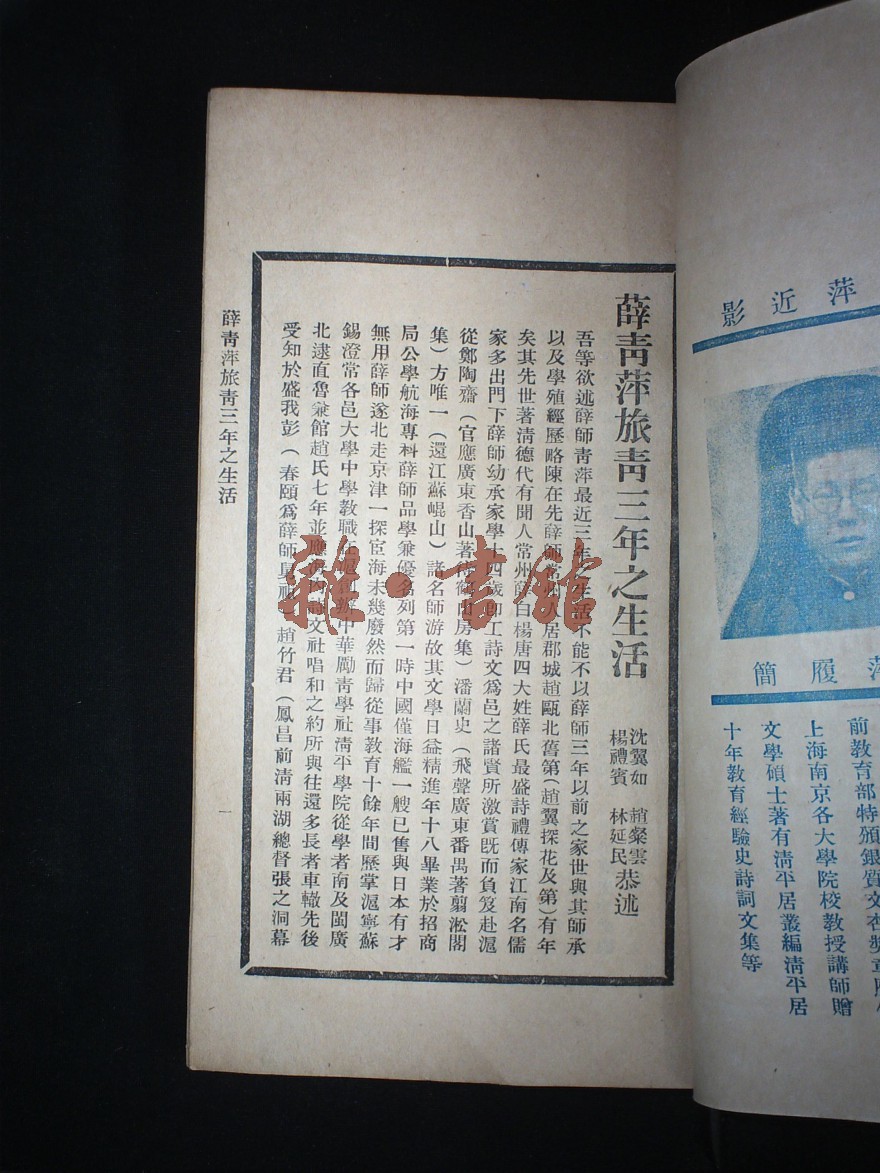 萍近影
萍履簡
前教育部特頒銀質文杏獎章
上海南京各大學院校教授講師贈
文學碩士著有淸平居叢編淸平居
十年教育經驗史詩詞文集等
薛靑萍旅靑三年之生活
沈翼如 趙粲雲
楊禮賓 林延民
恭述
吾等欲述薛師靑萍最近三年之生活不能不以薛師三年以前之家世與其師承
以及學殖經歷略陳在先薛師常州人居郡城趙甌北舊第（趙翼探花及第）有年
矣其先世著淸德代有聞人常州薛白楊唐四大姓薛氏最盛詩禮傳家江南名儒
家多出門下薛師幼承家學十四歲卽工詩文爲邑之諸賢所激賞旣而負笈赴滬
從鄭陶齋（官應廣東香山著 山房集）潘蘭史（飛聲廣東番禺著翦淞閣
集）方唯一（還江蘇崐山）諸名師游故其文學日益精進年十八畢業於招商
局公學航海專科薛師品學兼優名列第一時中國僅海艦一艘已售與日本有才
無用薛師遂北走京津一探宦海未幾廢然而歸從事教育十餘年間歷掌滬寧蘇
錫澄常各邑大學中學教職 創辦中華勵靑學社淸平學院從學者南及閩廣
北逮直魯兼館趙氏七年並應海內詩文社唱和之約所與往還多長者車轍先後
受知於盛我彭（春頤爲薛師 ）趙竹君（鳳昌前淸兩湖總督張之洞幕
薛靑萍旅靑三年之生活
一
雜·書館